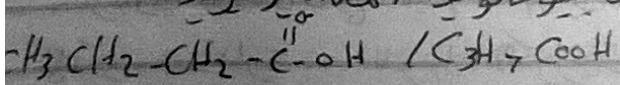 -H3 CH2-CH2-C-OH / C3H7 COOH